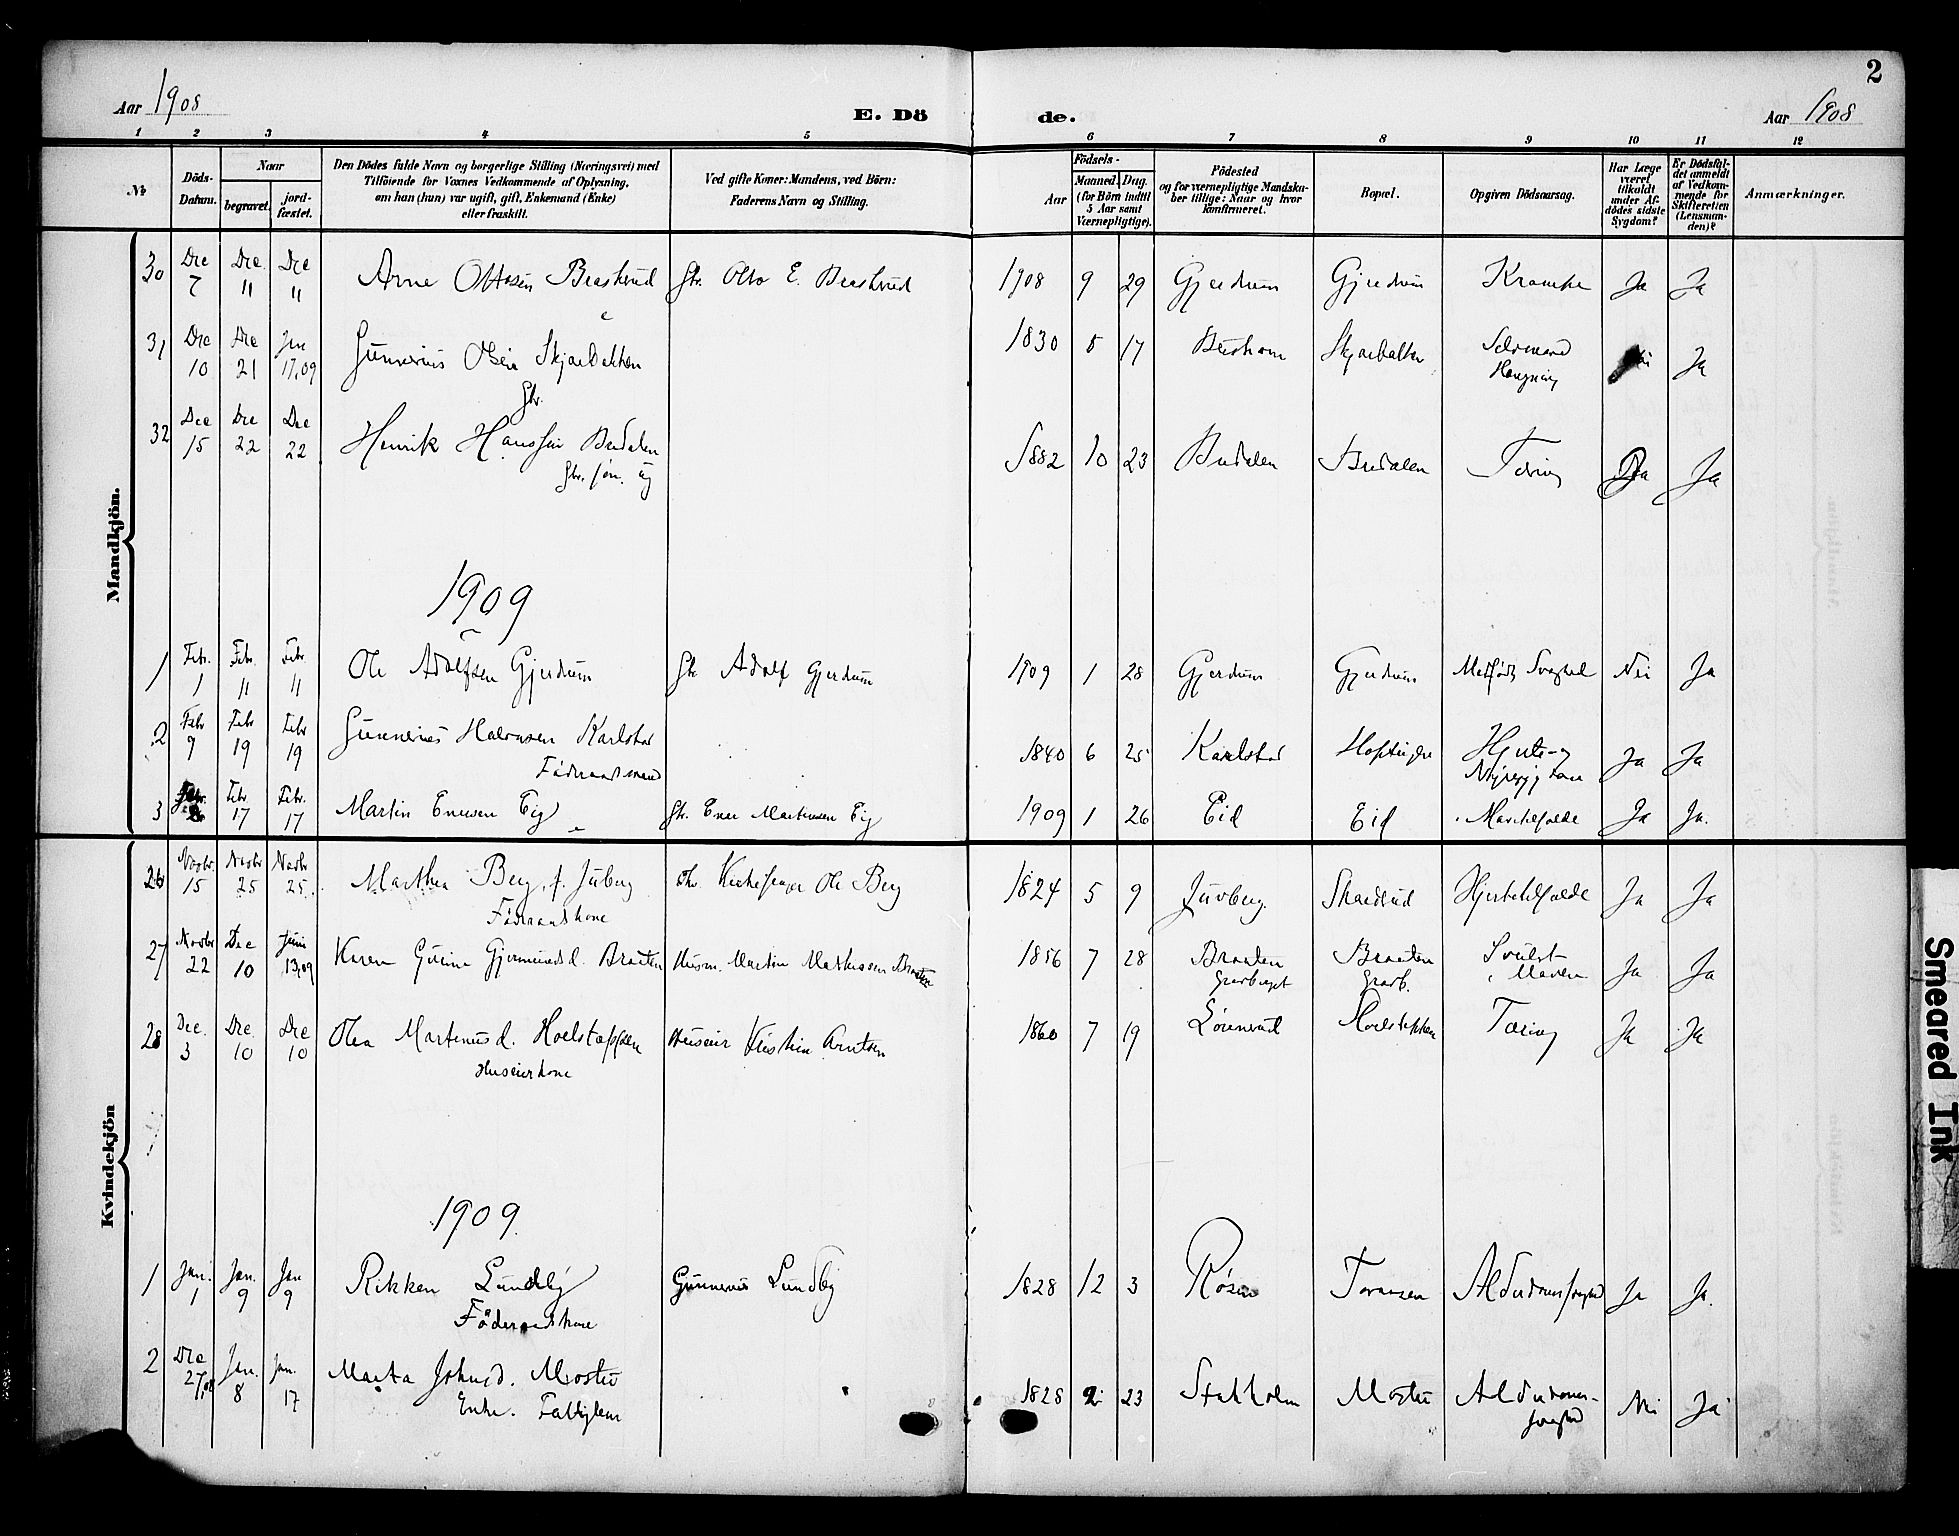 2
Aar 1908
E. Dö de.
Aar 1908
1 2 3 4 5 6 7 8 9 10 11 12
No
Döds-Datum.
Naar
begravet.
jordfæstet.
Den Dödes fulde Navn og borgerlige Stilling (Næringsvei) med
Tilföiende for Voxnes Vedkommende af Oplysning,
om han (hun) var ugift, gift, Enkemand (Enke)
eller fraskilt.
Ved gifte Koner: Mandens, ved Börn:
Faderens Navn og Stilling.
Födsels-
Aar
Maaned. Dag.
(for Börn indtil
5 Aar samt
Værnepligtige).
Födested
og for værnepligtige Mandskaber tillige: Naar og hvor
konfirmeret.
Bopæl.
Opgiven Dödsaarsag.
Har Læge
været
tilkaldt
under Afdödes sidste
Sygdom?
Er Dödsfaldet anmeldt
af Vedkommende for
Skifteretten
(Lensmanden)?
Anmærkninger.
Mandkjön.
30 Dec 7 Dec 11 Dec 11 Arne Ottosen Gbr. Otto E. 1908 9 29 Gjerdrum Gjerdrum Krampe Ja Ja
31 Dec 10 Dec 21 Jan 17,09 Gunnerius Olsen Skjærbekken 1830 5 17 Skjærbekken Selvmord Ja
Hængning
Gbr.
32 Dec 15 Dec 22 Dec 22 Henrik Hanssen Budalen 1882 10 23 Budalen Budalen Tæring Ja Ja
Gbr. søn. ug
1909
1 Febr. 1 Febr. 11 Febr 11 Ole Adolfsen Gjerdrum Gbr Adolf Gjerdrum 1909 1 28 Gjerdrum Gjerdrum Medfødt Svaghed Nei Ja
2 Febr 9 Febr 19 Febr 19 Gunnerius Halvorsen Karlstad 1840 6 25 Karlstad Hjerte- og Ja Ja
Föderaadsmand
3 Febr. 17 Febr. 17 Martin Enersen Eig Gbr. Ener Martinsen Eig 1909 1 26 Eid Eid Ja Ja.
Kvindekjön
26 Novbr. 15 Novbr 25 Novbr 25. Marthea Berg, f. Juberg fhv. Kirkesanger Ole Berg 1824 5 9 Juvberg Hjerteldfælde Ja Ja
Föderaadskone
27 Novbr 22 Dec 10 Juni 13,09 Karen Gurine Gjermundsd. Braaten Husm. Martin Mathisen Braaten 1856 7 28 Braaten Braaten Svulst i Maven Ja Ja
28 Dec. 3 Dec. 10 Dec 10 Olea Martinusd. Holstøkken Huseier Kristian Arntsen 1860 7 19 Lörenrud Tæring Ja Ja
Huseierkone
1909.
1 Jan. 1 Jan. 9 Jan 9 Rikken Lundby Gunnerius Lundby 1828 12 3 Alderdomssvaghed Ja Ja.
Föderaadskone
2 Dec 27,08 Jan. 8 Jan. 17 Marta Johnsd. 1828 2 23 Stokholm Alderdomssvaghed Nei Ja
Enke. Fattiglem
Smeared Ink